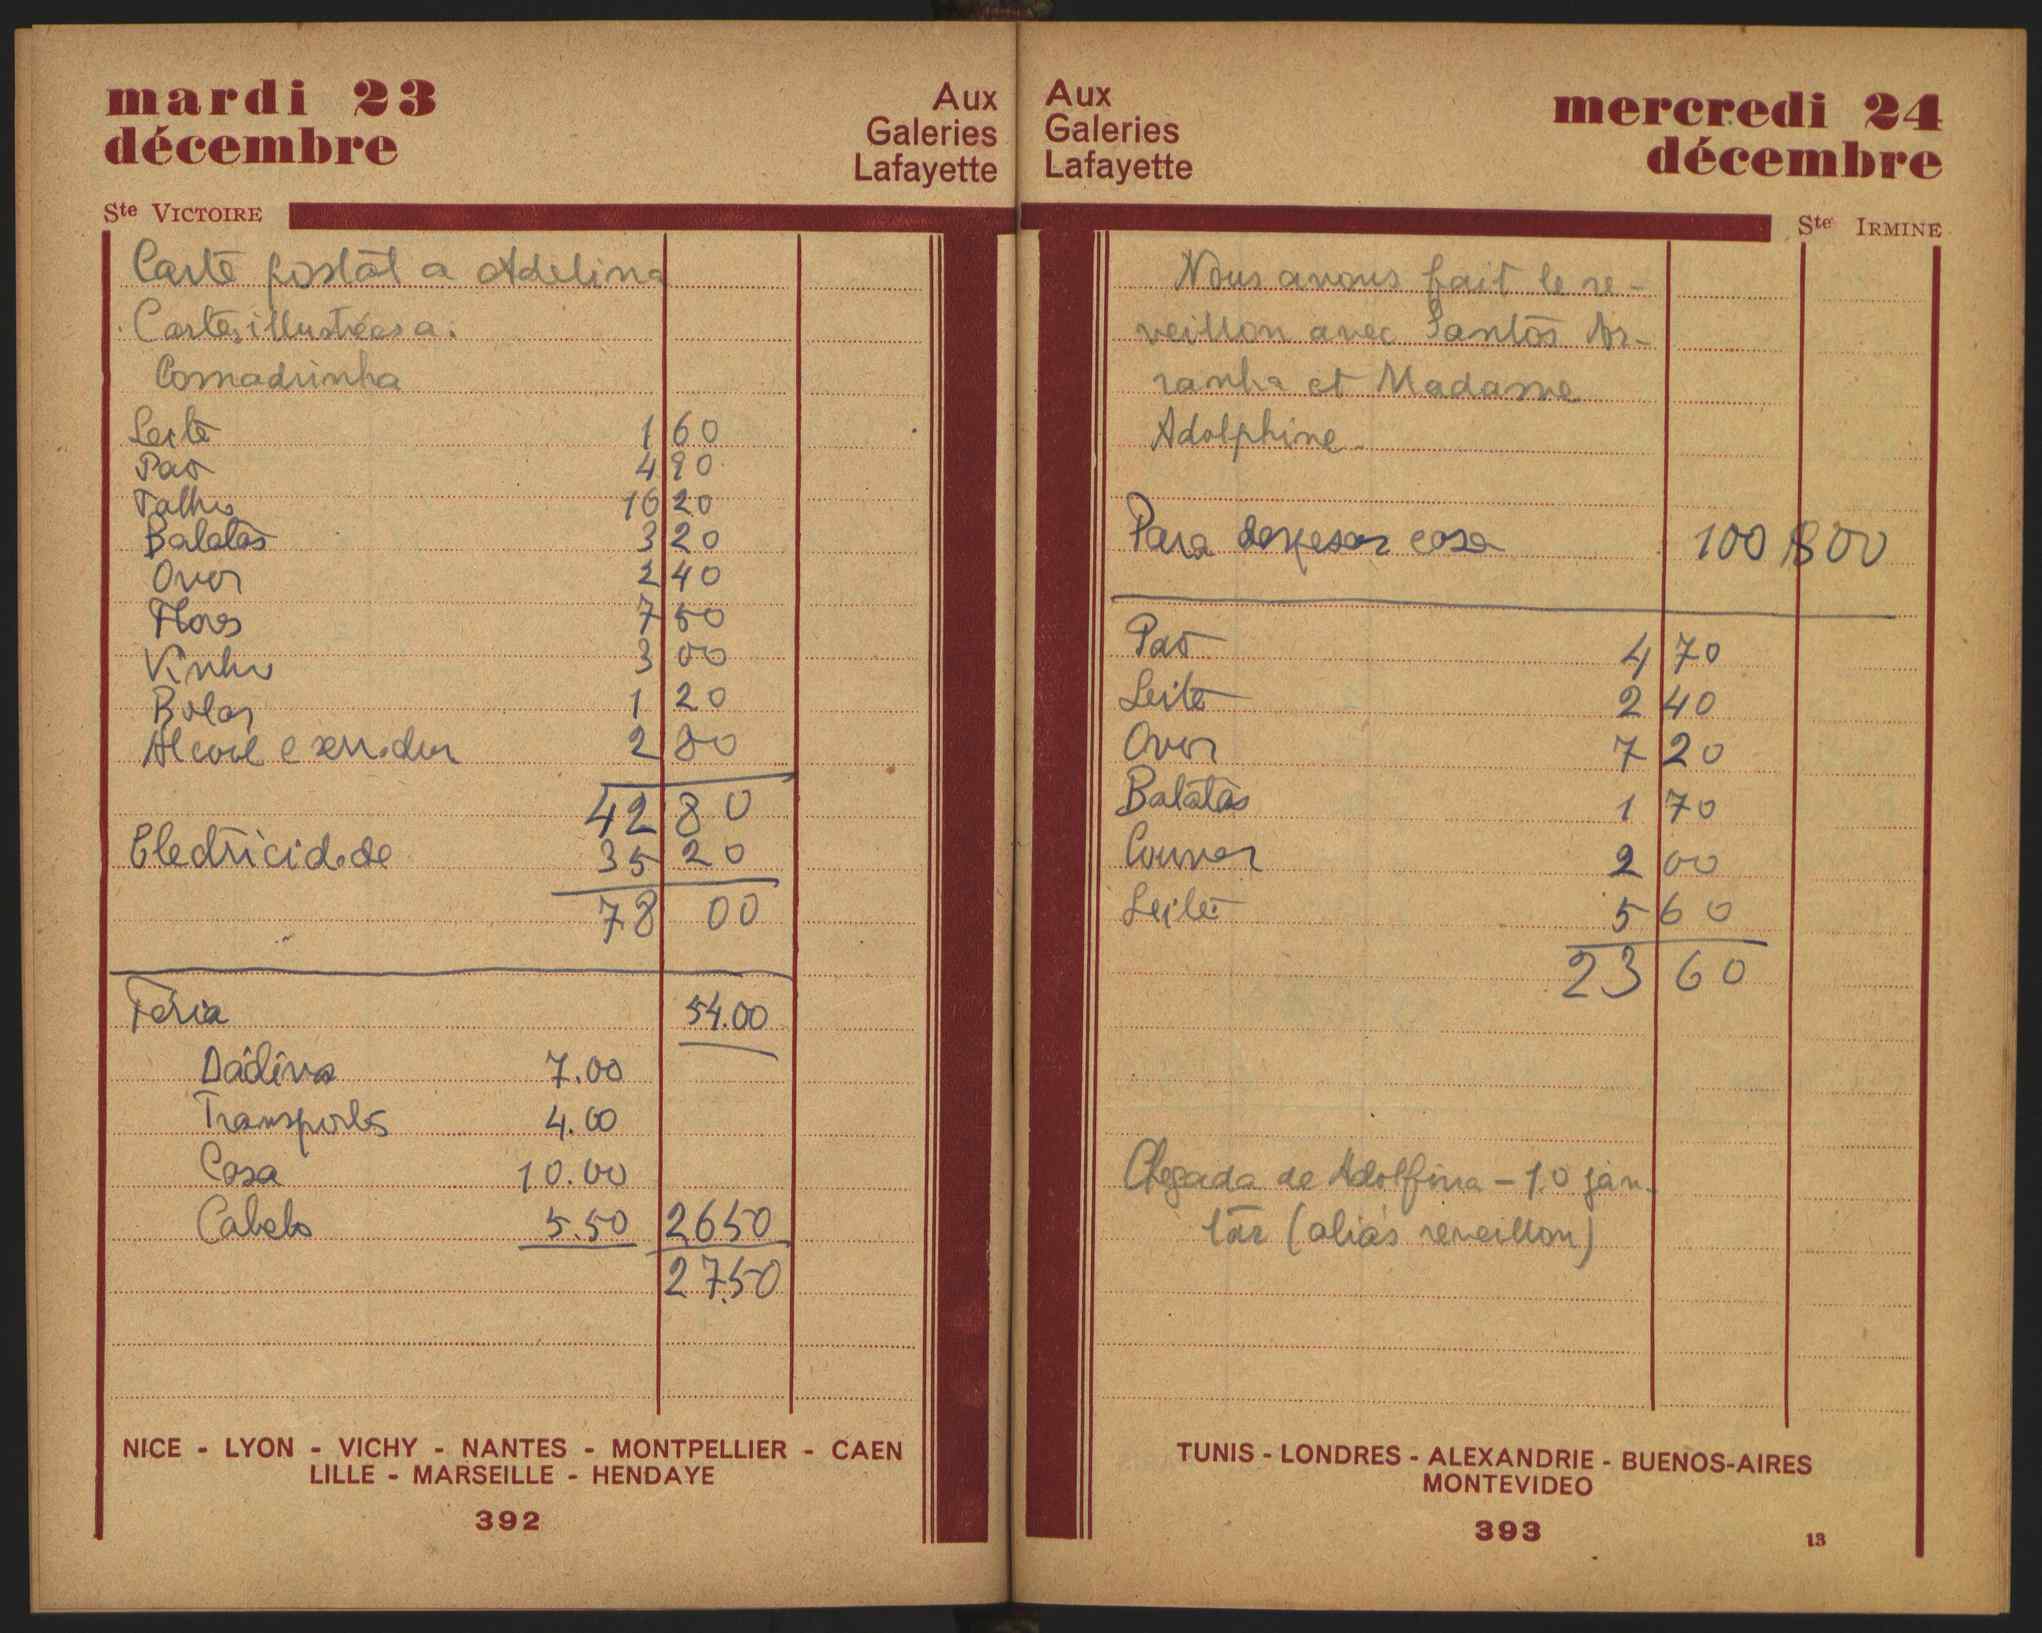 mardi 23
décembre
Aux
Galeries
Lafayette
Ste VICTOIRE
Carte postal a Adelina
Cartes illustrées a:
Comadrinha
Leite 1 60
Pão 4 90
Talho 16 20
Batatas 3 20
Ovos 2 40
Flores 7 50
Vinho 3 00
Bolos 1 20
Alcool e 2 80
42 80
Electricidade 35 20
78 00
Féria 54.00
Dádiva 7.00
Transportes 4.00
Casa 10.00
Cabelo 5.50 2650
27.50
NICE - LYON - VICHY - NANTES - MONTPELLIER - CAEN
LILLE - MARSEILLE - HENDAYE
392
Aux
Galeries
Lafayette
mercredi 24
décembre
Ste IRMINE
Nous avons fait le re-
veillon avec Santos Ar-
ranha et Madame
Adolphine.
Para despesas casa 100$00
Pão 4 70
Leite 2 40
Ovos 7 20
Batatas 1 70
Couves 2 00
Leite 5 60
23 60
Chegada de Adolfina - 1.o jan-
tar (aliás reveillon)
TUNIS - LONDRES - ALEXANDRIE - BUENOS-AIRES
MONTEVIDEO
393
13